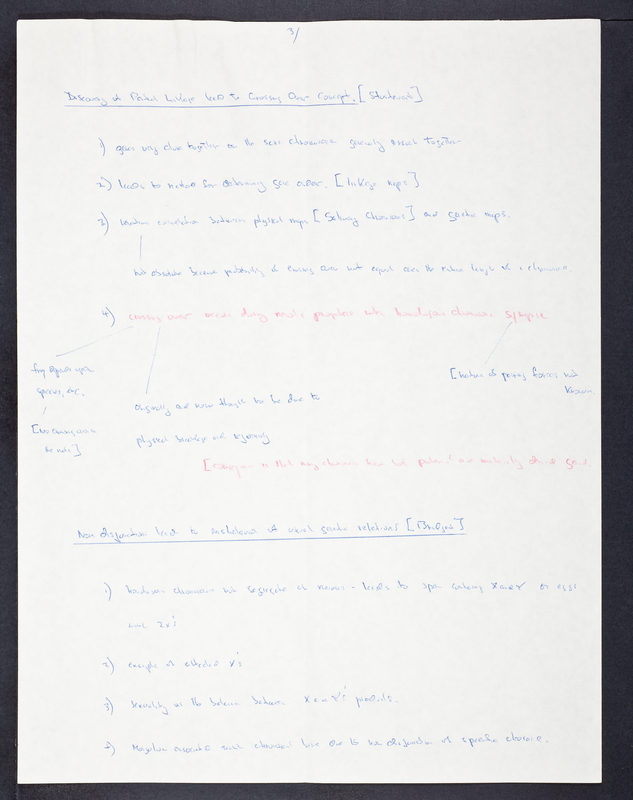 3/
Discovery of Partial Linkage leads to Crossing Over Concept. [Sturtevant]
1) genes very close together on the same chromosome generally travel together
2) leads to method for determining gene order. [linkage maps]
3) correlation between physical maps [Salivary Chromosomes] and genetic maps.
not absolute because probability of crossing over not equal over the entire length of a chromosome.
4) crossing over occurs during meiotic prophase when homologous chromosomes synapse
frequency varies upon
species, etc.
[nature of pairing forces not
known.
[No crossing over in
the male]
originally and now thought to be due to
physical breakage and rejoining
[ is that many chromosomes have both paternal and maternally derived genes.
Non disjunction leads to of usual genetic relations [Bridges]
1) homologous chromosomes not segregate at meiosis - leads to sperm containing X and Y or eggs
with 2X's
2) example of attached X's
3) sexuality as the balance between X and Y's products.
4) Mongolism associated with chromosomal due to non disjunction of specific chromosome.